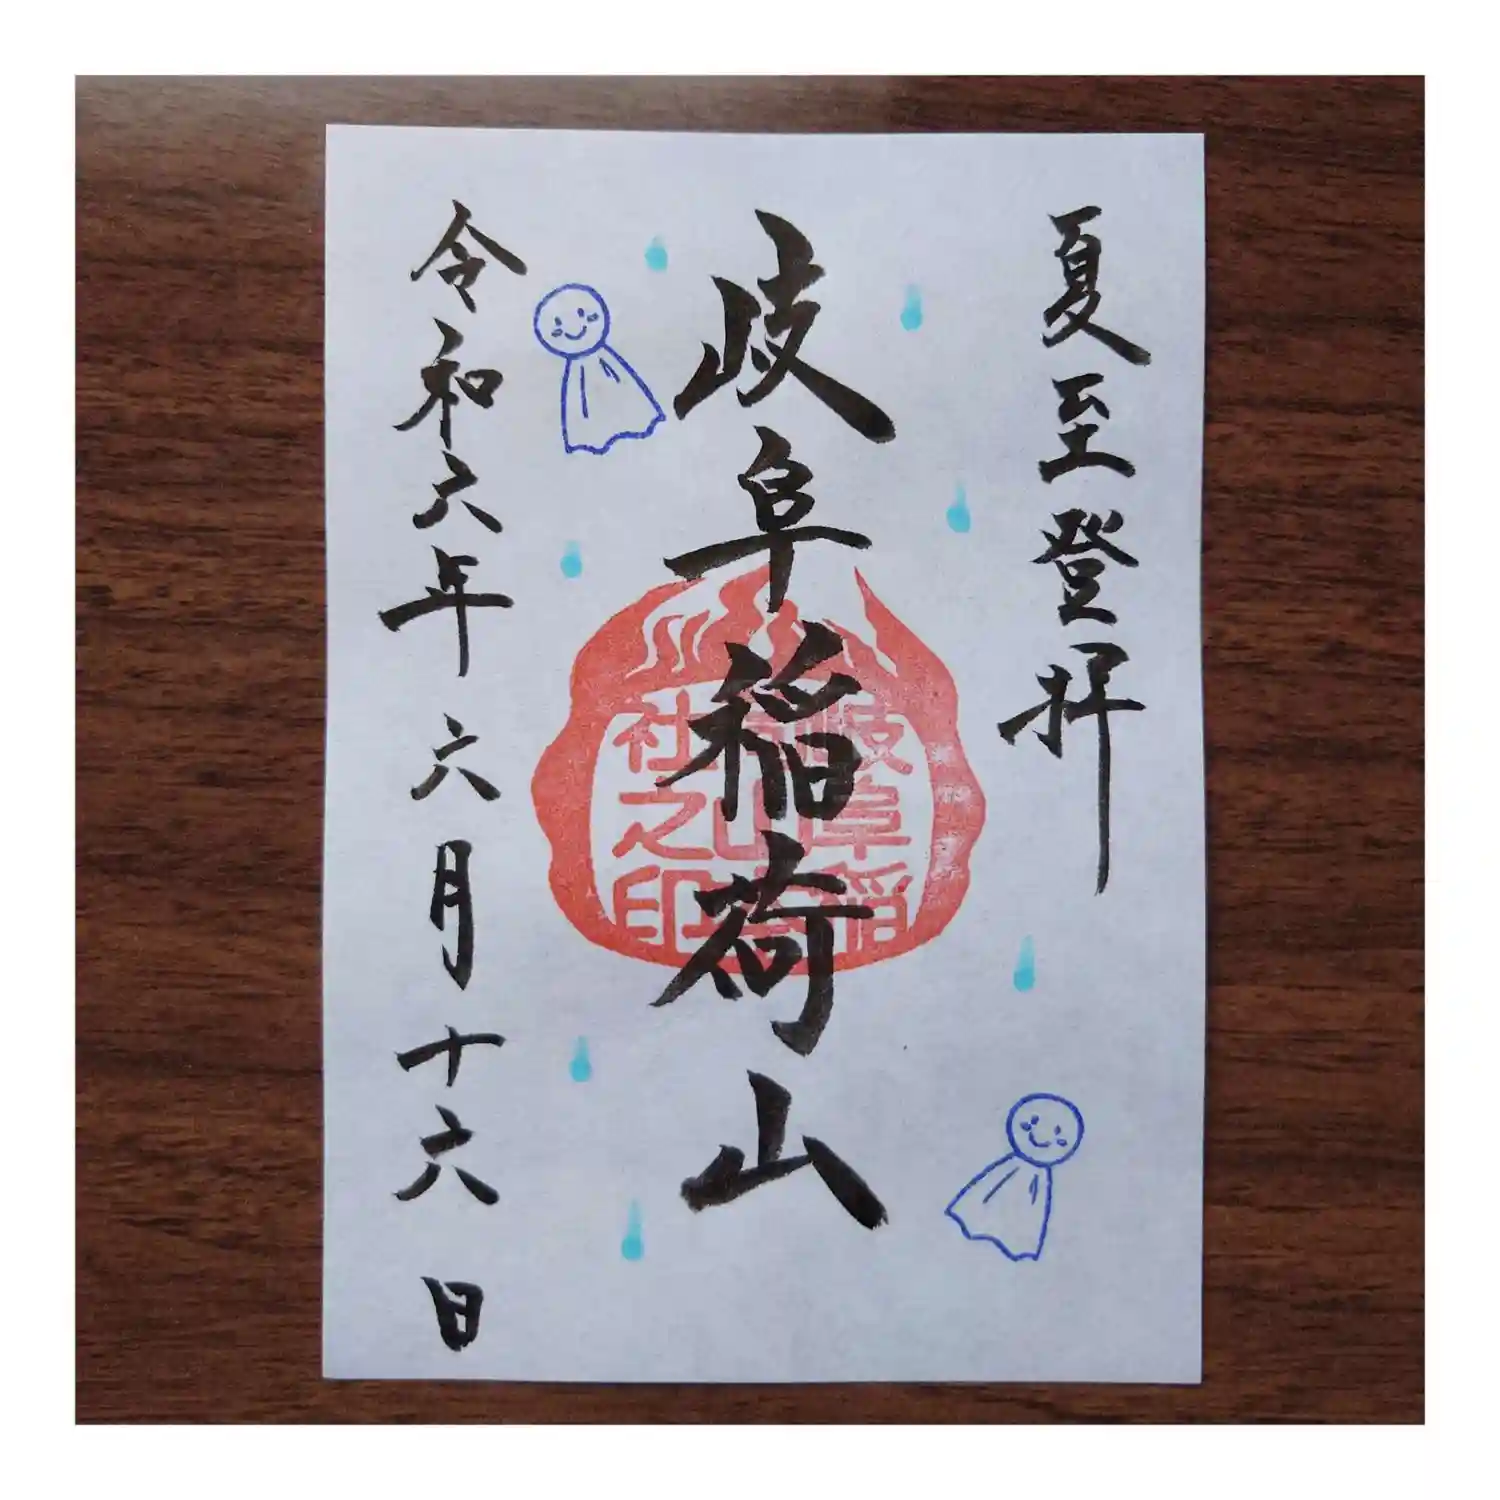 夏至登拝
岐阜稲荷山
岐阜稲
社之印
令和六年六月十六日